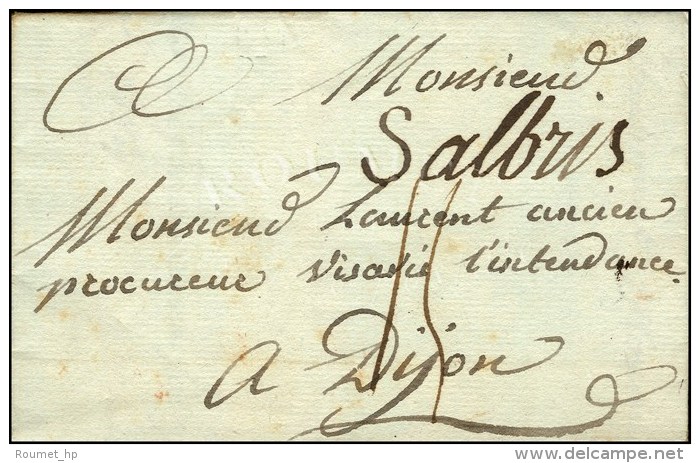 Monsieur
Salbris
Monsieur Laurent ancien
procureur visavie l'intendance
15
a Dijon
Roumet_hp
www.delcampe.net